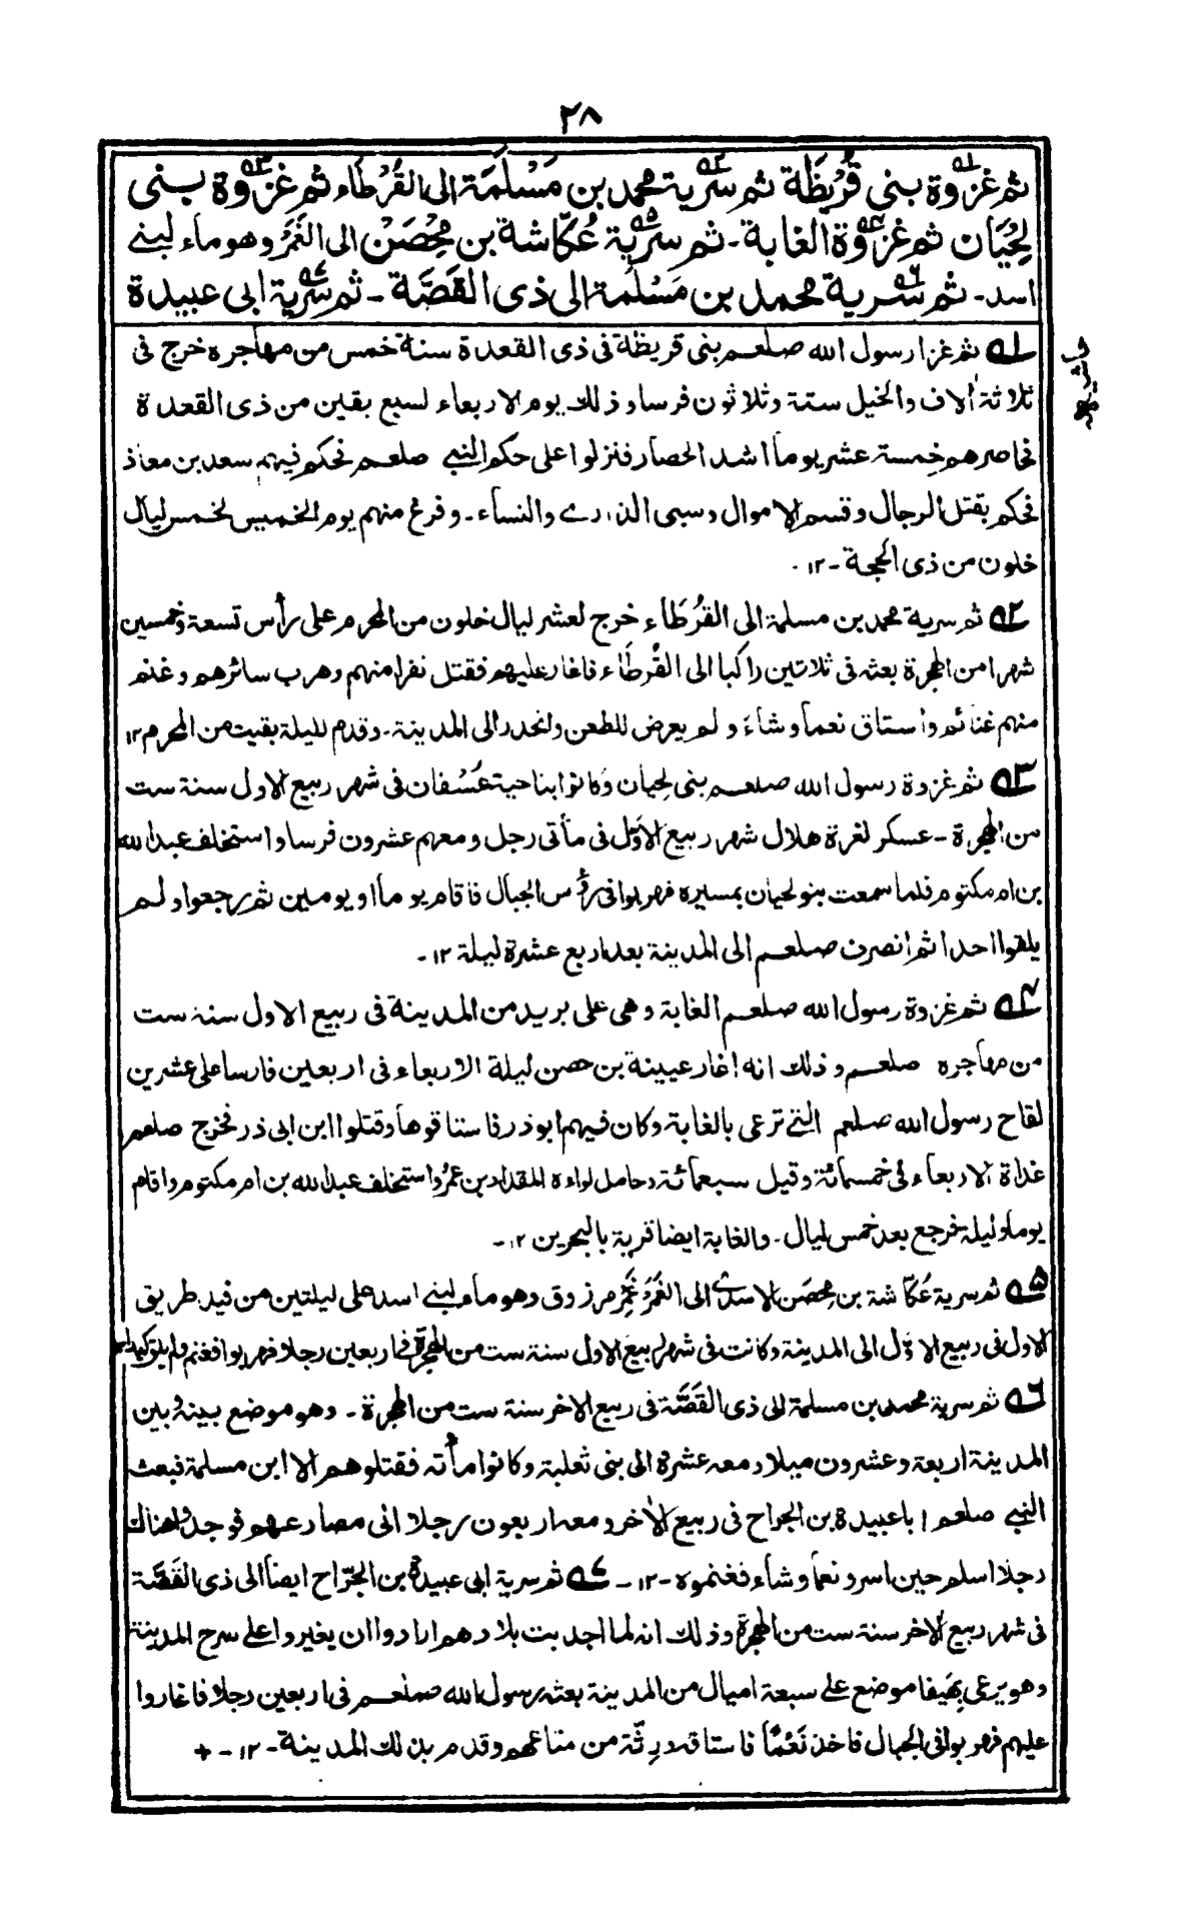 ٢٨
ثم غزوة بنى قُرَيْظَة ثم سَرية محمد بن مَسْلَمَة الى القُرْطَاء ثم غزوة بنى
لِحْيَان ثم غزوة الغابة ـ ثم سرية عُكّاشة بن مِحْصَن الى الغَمْر وهو ماء لبنے
اسد ـ ثم سرية محمد بن مَسْلَمة الى ذى القَصَّة ـ ثم سَرية ابى عبيدة
حاشيه
١ـه ثم غزا رسول الله صلعم بنى قريظة فى ذى القعدة سنة خمس من مهاجره خرج فى
ثلاثة آلاف والخيل ستة وثلاثون فرسا وذلك يوم الاربعاء لسبع بقين من ذى القعدة
فحاصرهم خمسة عشر يوما اشد الحصار فنزلوا على حكم النبے صلعم فحكم فيهم سعد بن معاذ
فحكم بقتل الرجال وقسم الاموال وسبى الذرارے والنساء ـ وفرغ منهم يوم الخميس لخمس ليال
خلون من ذى الحجة ـ ١٢ ـ
٢ـه ثم سرية محمد بن مسلمة الى القُرطَاء خرج لعشر ليال خلون من المحرم على رأس تسعة وخمسين
شهرا من الهجرة بعثه فى ثلاثين راكبا الى القُرطَاء فاغار عليهم فقتل نفرا منهم وهرب سائرهم وغنم
منهم غنائم واستاق نعما وشاءَ ولم يعرض للظعن وانحدر الى المدينة ـ وقدم لليلة بقيت من المحرم ١٢
٣ـه ثم غزوة رسول الله صلعم بنى لحيان وكانوا بناحية عُسْفان فى شهر ربيع الاول سنة ست
من الهجرة ـ عسكر لغرة هلال شهر ربيع الاول فى مأتى رجل ومعهم عشرون فرسا واستخلف عبد الله
بن ام مكتوم فلما سمعت بنو لحيان بمسيره فهربوا فى رؤس الجبال فاقام يوما او يومين ثم رجعوا ولم
يلقوا احدا ثم انصرف صلعم الى المدينة بعد اربع عشرة ليلة ١٢ ـ
٤ـه ثم غزوة رسول الله صلعم الغابة وهى على بريد من المدينة فى ربيع الاول سنة ست
من مهاجره صلعم وذلك انه اغار عيينة بن حصن ليلة الاربعاء فى اربعين فارسا على عشرين
لقاح رسول الله صلعم التے ترعى بالغابة وكان فيهم ابو ذر فاستاقوها وقتلوا ابن ابى ذر فخرج صلعم
غداة الاربعاء فى خمسمائة وقيل سبعمائة وحامل لواءه المقداد بن عمرو واستخلف عبد الله بن ام مكتوم واقام
يوما وليلة فرجع بعد خمس ليال ـ والغابة ايضا قرية بالبحرين ١٢ ـ
٥ـه ثم سرية عُكّاشة بن مِحصَن الاسدے الى الغَمْر غَمْر مرزوق وهو ماء لبنے اسد على ليلتين من فيد طريق
الاول فى ربيع الاول الى المدينة وكانت فى شهر ربيع الاول سنة ست من الهجرة فے اربعين رجلا فهربوا فغنم ولم يلق كيدا
٦ـه ثم سرية محمد بن مسلمة الى ذى القَصَّة فى ربيع الاخر سنة ست من الهجرة ـ وهو موضع بينه وبين
المدينة اربعة وعشرون ميلا ومعه عشرة الى بنى ثعلبة وكانوا مأته فقتلوهم الا ابن مسلمة فبعث
النبے صلعم ابا عبيدة بن الجراح فى ربيع الاخر ومعه اربعون رجلا الى مصارعهم فوجدوا هناك
رجلا اسلم حين اسر ونعما وشاء فغنموه ـ ١٢ ـ ٧ـه ثم سرية ابى عبيدة بن الجرّاح ايضا الى ذى القَصَّة
فى شهر ربيع الاخر سنة ست من الهجرة وذلك انه لما اجدبت بلادهم ارادوا ان يغيروا على سرح المدينة
وهو يرعى بهَيفا موضع علے سبعة اميال من المدينة بعثه رسول الله صلعم فى اربعين رجلا فاغاروا
عليهم فهربوا فى الجبال فاخذ نَعْمًا فاستاقه ورِثّة من متاعهم وقدم بذلك المدينة ـ ١٢ ـ +